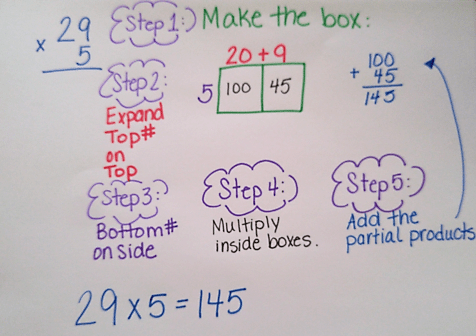 29
× 5
Step 1: Make the box:
20 + 9
5 100 45
100
+ 45
145
Step 2:
Expand
Top#
on
Top
Step 3:
Bottom#
on side
Step 4:
Multiply
inside boxes.
Step 5:
Add the
partial products
29 x 5 = 145